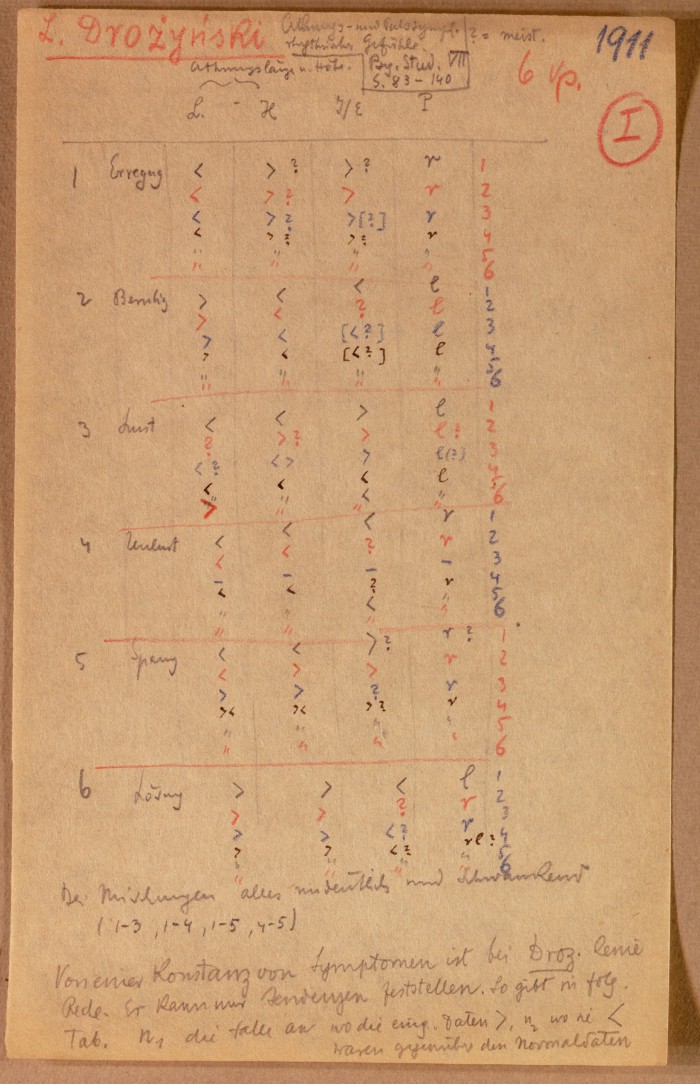 L. Drożyński Athmungs- und Pulssympt. ? = meist. 1911
rhythmischer Gefühle.
Athmungslänge u. Höhe. Psy. Stud. VII 6 Vp.
S. 83 - 140
L. - H J/E P I
1 Erregug < > ? > ? r 1
< > ? > r 2
< > ? > [?] r 3
< > ? > ? r 4
" " " " 5
" " " " 6
2 Beruhig > < < l 1
> < ? l 2
> < [< ?] l 3
> < [< ?] l 4
" " " " 5
" " " " 6
3 Lust < < > l 1
? > ? > l ? 2
< ? < > > l (?) 3
< < < l 4
" " < " 5
> " " " 6
4 Unlust < < < r 1
< < ? r 2
- - - - 3
< < ? r 4
" " < " 5
" " " " 6
5 Spang < < > ? r ? 1
< > > r 2
> > ? r 3
>< >< > ? r 4
" " " " 5
" " " " 6
6 Lösung > > < l 1
> > ? r 2
> > < ? r 3
> > < ? rl ? 4
" " " " 5
" 6
Bei Mischungen alles undeutlich und schwankend
(1-3, 1-4, 1-5, 4-5)
Von einer Konstanz von Symptomen ist bei Droz. keine
Rede. Er kann nur Tendenzen feststellen. So gibt in folg.
Tab. n₁ die Fälle an wo die eing. Daten >, n₂ wo sie <
waren gegenüber den Normaldaten